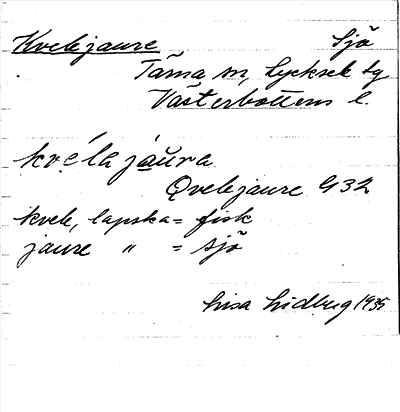 Kvelejaure Sjö
Tärna sn, Lycksele tg
Västerbottens l.
kvẹ́la ja̱ŭra
Qvelejaure G32
kvele, lapska = fisk
jaure " = sjö
Lisa Lidberg 1935